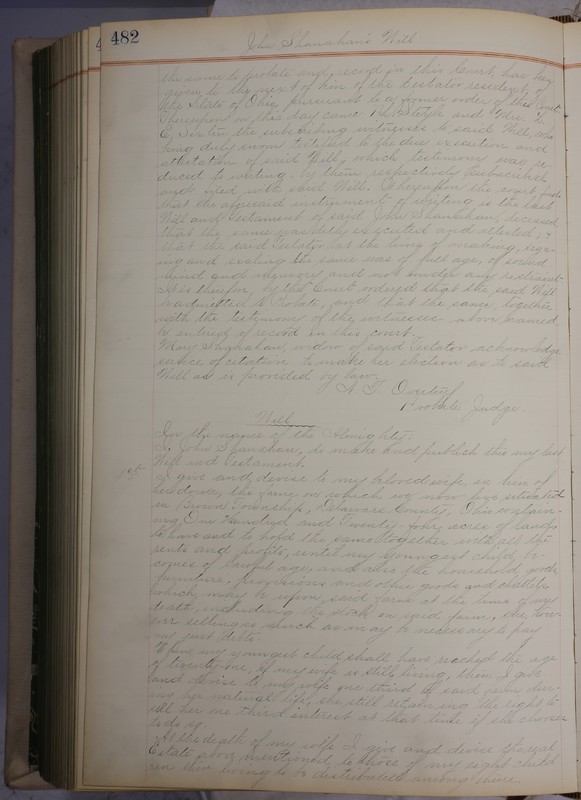 482
John Shanahan's Will
the same to probate and record in this Court, has been
given to the next of kin of the testator resident of
the State of Ohio, pursuant to a former order of this Court.
Thereupon on this day came and
the subscribing witnesses to said Will, who
being duly sworn testified to the due execution and
attestation of said Will, which testimony was re-
duced to writing by them respectively subscribed
and filed with said Will. Whereupon the court find
that the aforesaid instrument of writing is the last
Will and Testament of said John Shanahan, deceased
that the same was duly executed and attested, &
that the said Testator at the time of making, sign-
ing and sealing the same was of full age, of sound
mind and memory and not under any restraint.
It is therefore, by the Court ordered that the said Will
be admitted to Probate, and that the same, together
with the testimony of the witnesses above named
be entered of record in this court.
Mary Shanahan, widow of said Testator acknowledge
service of citation to make her election as to said
Will as is provided by law.
Probate Judge.
Will
In the name of the Almighty:
I, John Shanahan, do make and publish this my last
Will and Testament.
1st I give and devise to my beloved wife, in lieu of
her dower, the farm on which we now live situated
in Brown Township, Delaware County, Ohio contain-
ing One Hundred and Twenty-four acres of land,
to have and to hold the same together with all the
rents and profits, until my youngest child be-
comes of lawful age, and also the household goods
furniture, provisions and other goods and chattels
which may be upon said farm at the time of my
death, including the stock on said farm, she, how-
ever selling so much as may be necessary to pay
my just debts.
When my youngest child shall have reached the age
of twenty-one, if my wife is still living, then I give
and devise to my wife one third of said farm dur-
ing her natural life, she still retaining the right to
sell her one third interest at that time if she chooses
to do so.
At the death of my wife I give and devise the real
Estate above mentioned to those of my eight child
ren then living to be distributed among them.